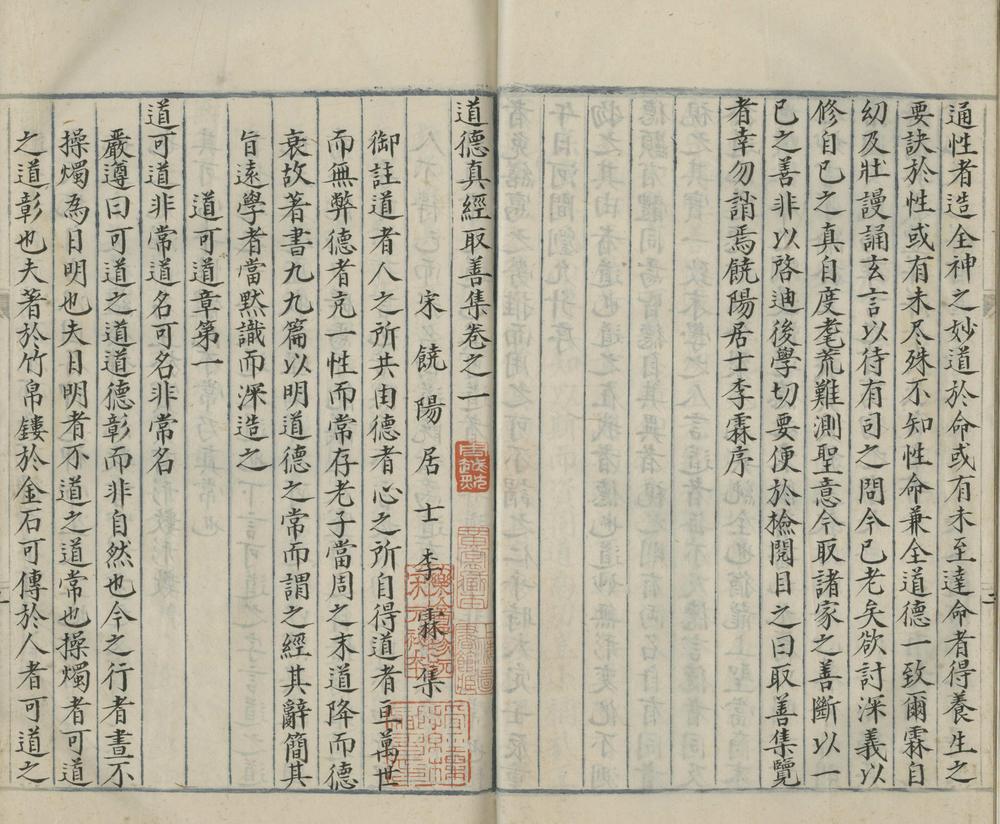 通性者造全神之妙道於命或有未至達命者得養生之
要訣於性或有未尽殊不知性命兼全道德一致爾霖自
幼及壯謾誦玄言以待有司之問今已老矣欲討深義以
修自己之真自度耄荒難測聖意今取諸家之善斷以一
己之善非以啓迪後學切要便於撿閱目之曰取善集覽
者幸勿誚焉饒陽居士李霖序
道德真經取善集卷之一
宋饒陽居士李霖集
御註道者人之所共由德者心之所自得道者亘萬世
而無弊德者充一性而常存老子當周之末道降而德
衰故著書九九篇以明道德之常而謂之經其辭簡其
旨遠學者當默識而深造之
道可道章第一
道可道非常道名可名非常名
嚴遵曰可道之道道德彰而非自然也今之行者晝不
操燭為日明也夫日明者不道之道常也操燭者可道
之道彰也夫著於竹帛鏤於金石可傳於人者可道之